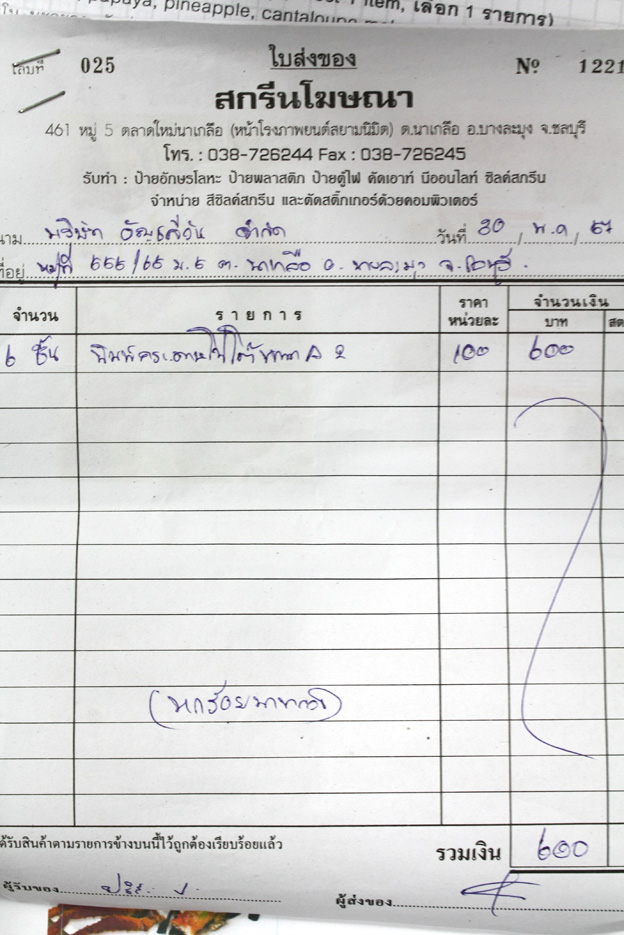 papaya, pineapple, cantaloupe
item, เลือก 1 รายการ)
เล่มที่ 025 ใบส่งของ Nº 1221
สกรีนโฆษณา
461 หมู่ 5 ตลาดใหม่นาเกลือ (หน้าโรงภาพยนต์สยามนิมิต) ต.นาเกลือ อ.บางละมุง จ.ชลบุรี
โทร. : 038-726244 Fax : 038-726245
รับทำ : ป้ายอักษรโลหะ ป้ายพลาสติก ป้ายตู้ไฟ คัดเอาท์ นีออนไลท์ ซิลค์สกรีน
จำหน่าย สีซิลค์สกรีน และตัดสติ๊กเกอร์ด้วยคอมพิวเตอร์
นาม บริษัท จำกัด วันที่ 30 / พ.ค / 67
ที่อยู่ หมู่ที่ ๕๕๕/๖๕ ม.๕ ต. นาเกลือ อ. บางละมุง จ. ชลบุรี.
จำนวน รายการ ราคา หน่วยละ จำนวนเงิน
บาท สต
๖ ชิ้น ขนาด A 2 ๑๐๐ ๖๐๐
(หกร้อยบาทถ้วน)
ได้รับสินค้าตามรายการข้างบนนี้ไว้ถูกต้องเรียบร้อยแล้ว
รวมเงิน ๖๐๐
ผู้รับของ ผู้ส่งของ